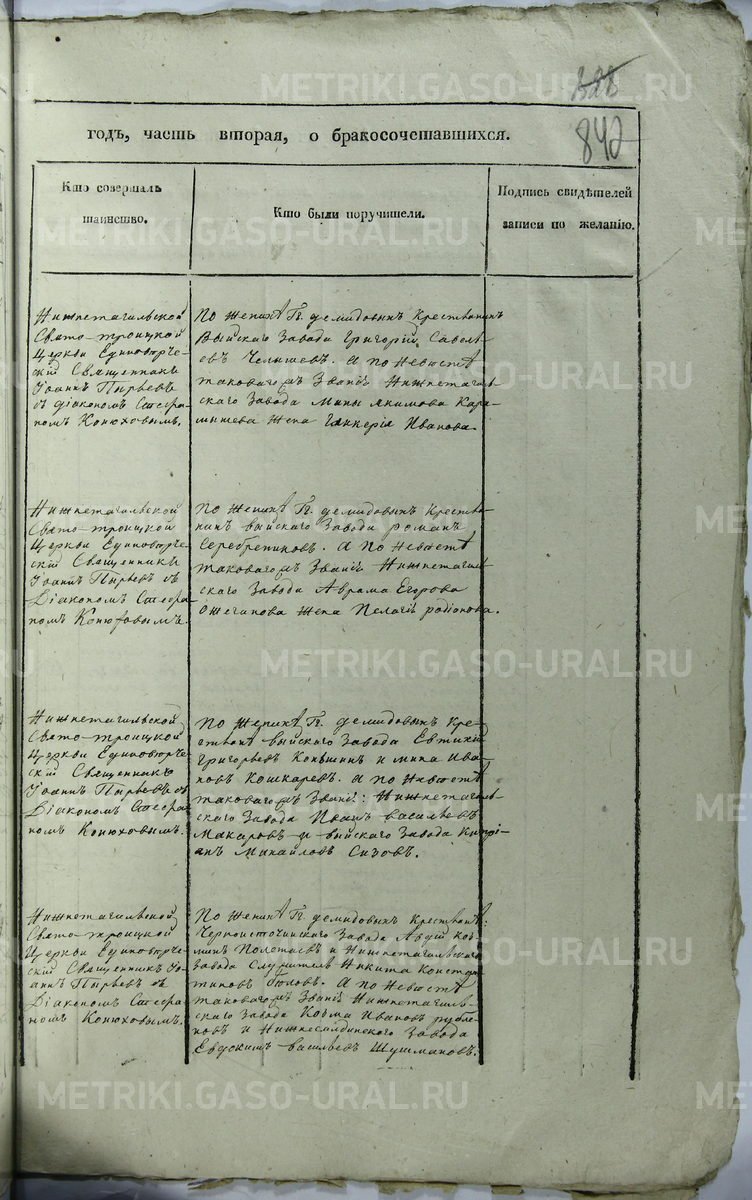 328
842
годъ, часть вторая, о бракосочетавшихся.
Кто совершалъ
таинство.
Кто были поручители.
Подпись свидѣтелей
записи по желанію.
Нижнетагильской
Свято-троицкой
Церкви Единоверче-
скій Священникъ
Іоаннъ Пырьевъ
съ діакономъ Стефа-
номъ Конюховымъ.
По Женихѣ Гг. демидовыхъ Крестьянинъ
Выйскаго Завода Григорій Савель-
евъ Челышевъ. А по Невѣстѣ
таковагожъ Званія Нижнетагиль-
скаго Завода Мины Якимова Кара-
мышева Жена Гликерія Иванова.
Нижнетагильской
Свято-троицкой
Церкви Единоверче-
скій Священникъ
Іоаннъ Пырьевъ съ
Діакономъ Стефа-
номъ Конюховымъ.
По Женихѣ Гг. демидовыхъ Крестья-
нинъ выйскаго Завода романъ
Серебрениковъ. А по Невѣстѣ
таковагожъ Званія Нижнетагиль-
скаго Завода Аврама Егорова
Ожегинова Жена Пелагія родіонова.
Нижнетагильской
Свято-троицкой
Церкви Единоверче-
скій Священникъ
Іоаннъ Пырьевъ съ
Діакономъ Стефа-
номъ Конюховымъ.
По Женихѣ Гг. демидовыхъ Кре-
стьяне выйскаго Завода Евтихій
Григорьевъ и мина Ива-
новъ Кошкаревъ. А по Невѣстѣ
таковагожъ Званія: Нижнетагиль-
скаго Завода Иванъ васильевъ
Макаровъ и выйскаго Завода Кипрі-
анъ Михайловъ Сизовъ.
Нижнетагильской
Свято-троицкой
Церкви Единоверче-
скій Священникъ Іо-
аннъ Пырьевъ съ
Діакономъ Стефа-
номъ Конюховымъ.
По Женихѣ Гг. демидовыхъ Крестьяне:
Черноисточинскаго Завода Авдій Коз-
минъ Полетаевъ и Нижнетагильскаго
завода Служитель Никита Констан-
тиновъ Беловъ. А по Невѣстѣ
таковагожъ Званія Нижнетагиль-
скаго Завода Козма Ивановъ рубле-
вовъ и Нижнесалдинскаго Завода
Евдокимъ васильевъ Шушмановъ.
METRIKI.GASO-URAL.RU
METRIKI.GASO-URAL.RU
METRIKI.GASO-URAL.RU
METRIKI.GASO-URAL.RU
METRIKI.GASO-URAL.RU
METRIKI.GASO-URAL.RU
METRIKI.GASO-URAL.RU
METRIKI.GASO-URAL.RU